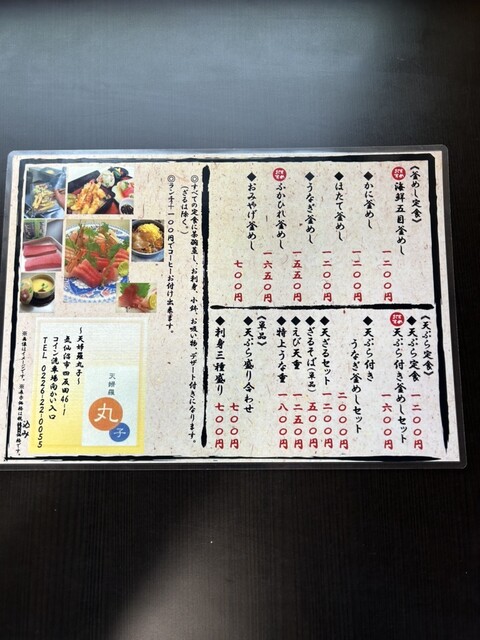 《釜めし定食》
おすすめ 海鮮五目釜めし 一二〇〇円
◆かに釜めし 一二〇〇円
◆ほたて釜めし 一二〇〇円
◆うなぎ釜めし 一五五〇円
おすすめ ふかひれ釜めし 一六五〇円
◆おみやげ釜めし 七〇〇円
《天ぷら定食》
◆天ぷら定食 一二〇〇円
おすすめ 天ぷら付き釜めしセット 一六〇〇円
◆天ぷら付き
うなぎ釜めしセット 二〇〇〇円
◆天ざるセット 一二〇〇円
◆ざるそば(単品) 五〇〇円
◆えび天重 一二五〇円
◆特上うな重 一八〇〇円
《単品》
◆天ぷら盛り合わせ 七〇〇円
◆刺身三種盛り 七〇〇円
◎すべての定食に茶碗蒸し、お刺身、小鉢、お吸い物、デザート付きになります。
(ざるは除く。)
◎ランチ+一〇〇円でコーヒーお付け出来ます。
~天婦羅丸子~
気仙沼市四反田46-1
コイン洗車場向かい入口
TEL 0226-22-0055
天婦羅
丸子
※画像はイメージです。